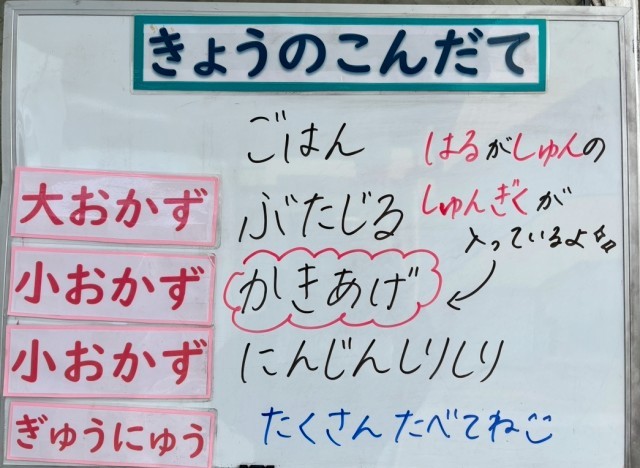 きょうのこんだて
ごはん
大おかず ぶたじる
小おかず かきあげ
小おかず にんじんしりしり
ぎゅうにゅう
はるがしゅんの
しゅんぎくが
入っているよ
たくさんたべてね